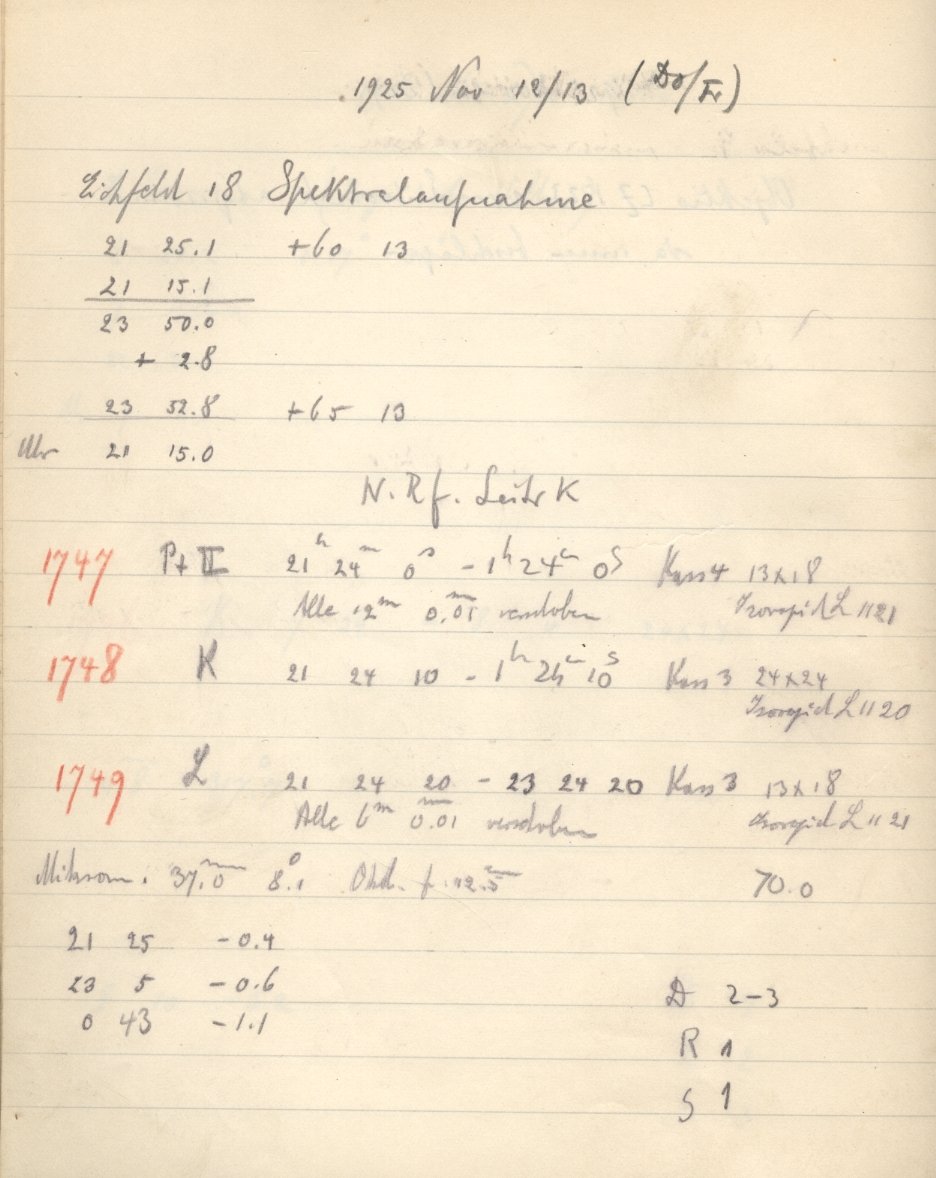 1925 Nov 12/13 (Do/Fr)
Eichfeld 18 Spektralaufnahme
21 25.1 +60 13
21 15.1
23 50.0
+ 2.8
23 52.8 +65 13
Uhr 21 15.0
N. Rf. Leitr K
1747 Pt II 21h 24m 0s - 1h 24m 0s Kass 4 13x18
Alle 12m 0.01mm verschoben Isorapid L 1121
1748 K 21 24 10 - 1h 24m 10s Kass 3 24x24
Isorapid L 1120
1749 L 21 24 20 - 23 24 20 Kass 3 13x18
Alle 6m 0.01mm verschoben Isorapid L 1121
Mikrom. 37.0mm 8.1° Okul. 12.5mm 70.0
21 25 -0.4
23 5 -0.6
0 43 -1.1
D 2-3
R 1
S 1